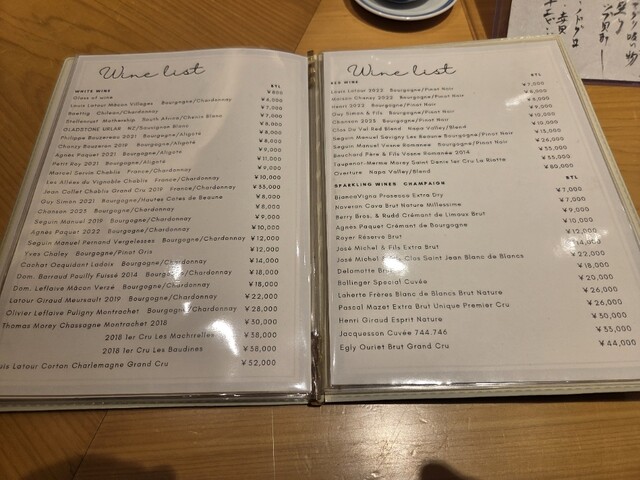 Wine list
WHITE WINE BTL
Glass of wine ¥800
Louis Latour Mâcon Villages Bourgogne/Chardonnay ¥6,000
Chilean/Chardonnay ¥7,000
Stellenrust South Africa/Chenin Blanc ¥7,000
GLADSTONE URLAR NZ/Sauvignon Blanc ¥8,000
Philippe Bouzereau 2021 Bourgogne/Aligoté ¥8,000
Chanzy Bouzeron 2019 Bourgogne/Aligoté ¥8,000
Agnès Paquet 2021 Bourgogne/Aligoté ¥9,000
Petit Roy 2021 Bourgogne/Aligoté ¥11,000
Marcel Servin Chablis France/Chardonnay ¥9,000
Les Allées du Vignoble Chablis France/Chardonnay ¥10,000
Jean Collet Chablis Grand Cru 2019 France/Chardonnay ¥35,000
Guy Simon 2021 Bourgogne/Hautes Cotes de Beaune ¥8,000
Chanson 2023 Bourgogne/Chardonnay ¥8,000
Seguin Manuel 2019 Bourgogne/Chardonnay ¥9,000
Agnès Paquet 2022 Bourgogne/Chardonnay ¥10,000
Seguin Manuel Fernand Vergelesses Bourgogne/Chardonnay ¥12,000
Yves Chaley Bourgogne/Pinot Gris ¥12,000
Cachat Ocquidant Ladoix Bourgogne/Chardonnay ¥14,000
Dom. Barraud Pouilly Fuissé 2014 Bourgogne/Chardonnay ¥18,000
Dom. Leflaive Mâcon Verzé Bourgogne/Chardonnay ¥18,000
Latour Giraud Meursault 2019 Bourgogne/Chardonnay ¥22,000
Olivier Leflaive Puligny Montrachet Bourgogne/Chardonnay ¥28,000
Thomas Morey Chassagne Montrachet 2018 ¥30,000
2018 1er Cru Les Machrrelles ¥38,000
2018 1er Cru Les Baudines ¥38,000
Louis Latour Corton Charlemagne Grand Cru ¥52,000
Wine list
RED WINE BTL
Louis Latour 2022 Bourgogne/Pinot Noir ¥7,000
Maison Chanzy 2022 Bourgogne/Pinot Noir ¥8,000
Henri 2022 Bourgogne/Pinot Noir ¥9,000
Guy Simon & Fils Bourgogne/Pinot Noir ¥10,000
Chanson 2023 Bourgogne/Pinot Noir ¥10,000
Clos Du Val Red Blend Napa Valley/Blend
Seguin Manuel Savigny Les Beaune Bourgogne/Pinot Noir
Seguin Manuel Vosne Romanee Bourgogne/Pinot Noir
Bouchard Père & Fils Vosne Romanée 2014
Taupenot-Merme Morey Saint Denis 1er Cru La Riotte
Overture Napa Valley/Blend
SPARKLING WINES CHAMPAIGN BTL
BiancaVigna Prosecco Extra Dry ¥7,000
Naveran Cava Brut Nature Millessime ¥7,000
Berry Bros. & Rudd Crémant de Limoux Brut ¥9,000
Agnès Paquet Crémant de Bourgogne ¥10,000
Royer Réserve Brut ¥12,000
José Michel & Fils Extra Brut ¥14,000
José Michel & Fils Clos Saint Jean Blanc de Blancs ¥22,000
Delamotte Brut ¥18,000
Bollinger Special Cuvée ¥20,000
Laherte Frères Blanc de Blancs Brut Nature ¥26,000
Pascal Mazet Extra Brut Unique Premier Cru ¥26,000
Henri Giraud Esprit Nature ¥30,000
Jacquesson Cuvée 744.746 ¥35,000
Egly Ouriet Brut Grand Cru ¥44,000